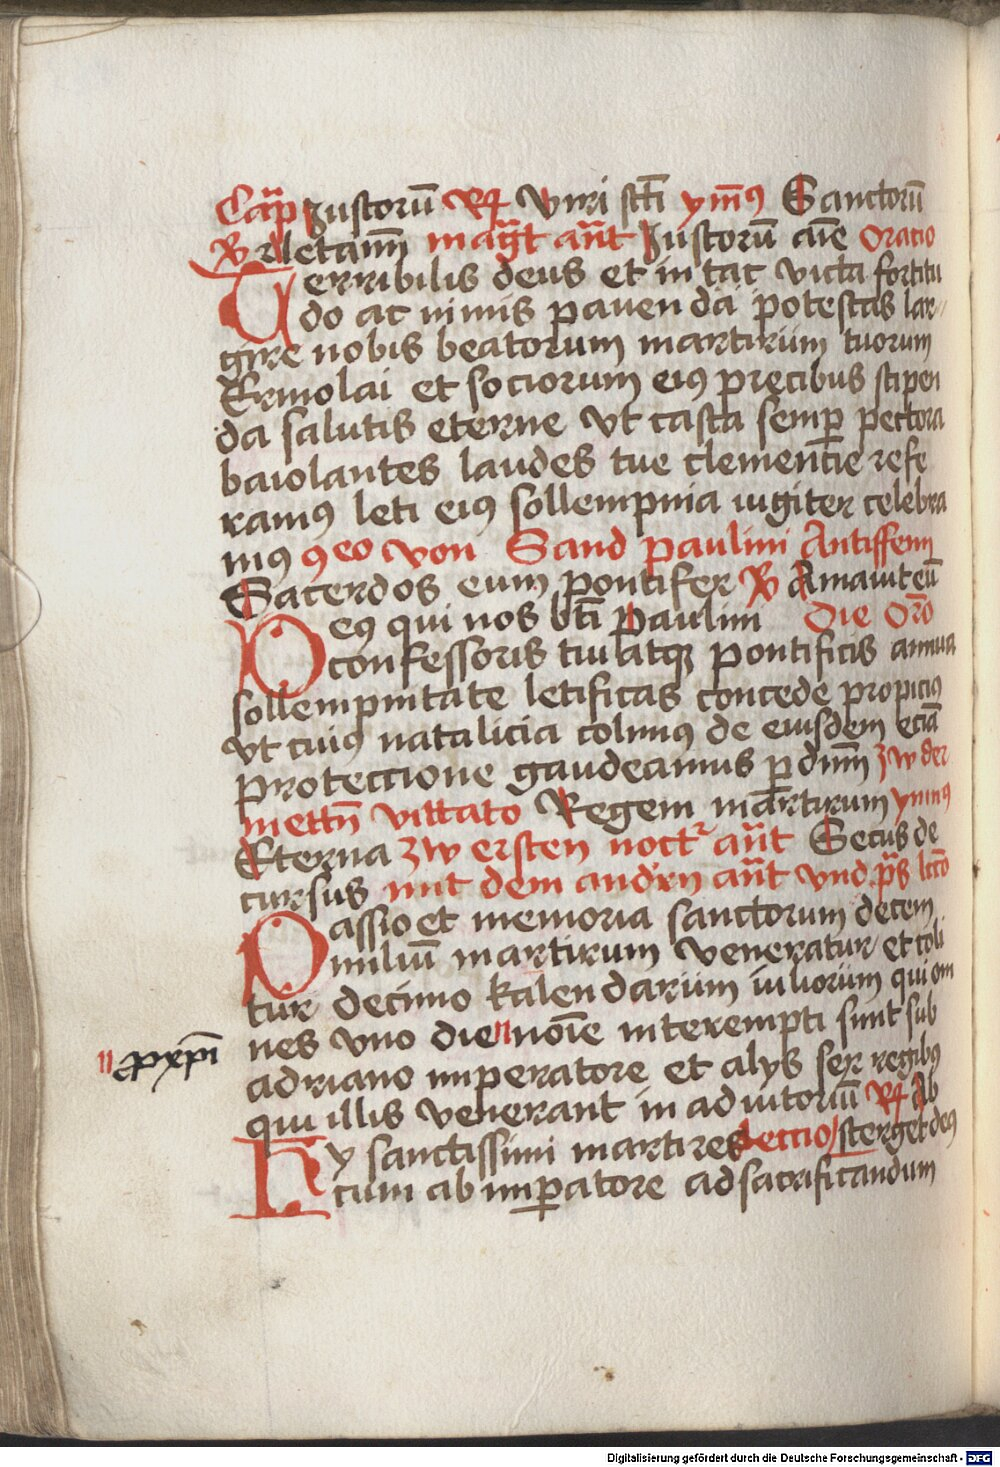 Cap̄ Justorū R Viri sc̄ti ym̄9 Sanctorū
℟ Letami͞ mag̃t an̄t Justorū aīe Oratio
Terribilis deus et intac victa fortitu
do ac nimis pauenda potestas lar
gire nobis beatorum martirum tuorum
Ermolai et sociorum ei9 precibus stipen
da salutis eterne Vt casta semp̄ pectora
baiolantes laudes tue clemencie refe
ram9 leti ei9 sollempnia iugiter celebra
m9 von Sand paulini Antiffenn
Sacerdos eum pontifex ℟ Amauit eū
De9 qui nos bt̄i Paulini Die Orō
confessoris tui atqꝫ pontificis annua
sollempnitate letificas concede propici9
Vt cui9 natalicia colim9 de eiusdem eciā
Proteccione gaudeamus p dnm̄ zw der
mettn̄ vittato Regem martirum ymn9
Eterna zw ersten noctr an̄t Secus de
cursus mit dem andrn an̄t vnd p̄s lcc̄o
Passio et memoria sanctorum decem
miliū martirum veneratur et coli
tur decimo kalendarum iuliorum qui om
nes vno die noīe interempti sunt sub
p xp̄i
adriano imperatore et alys sex regib9
qui illis venerant in adiutoriū R Ab
Hy sanctissimi martires Leccio sterget de9
cum ab impatore ad sacrificandum
Digitalisierung gefördert durch die Deutsche Forschungsgemeinschaft - DFG